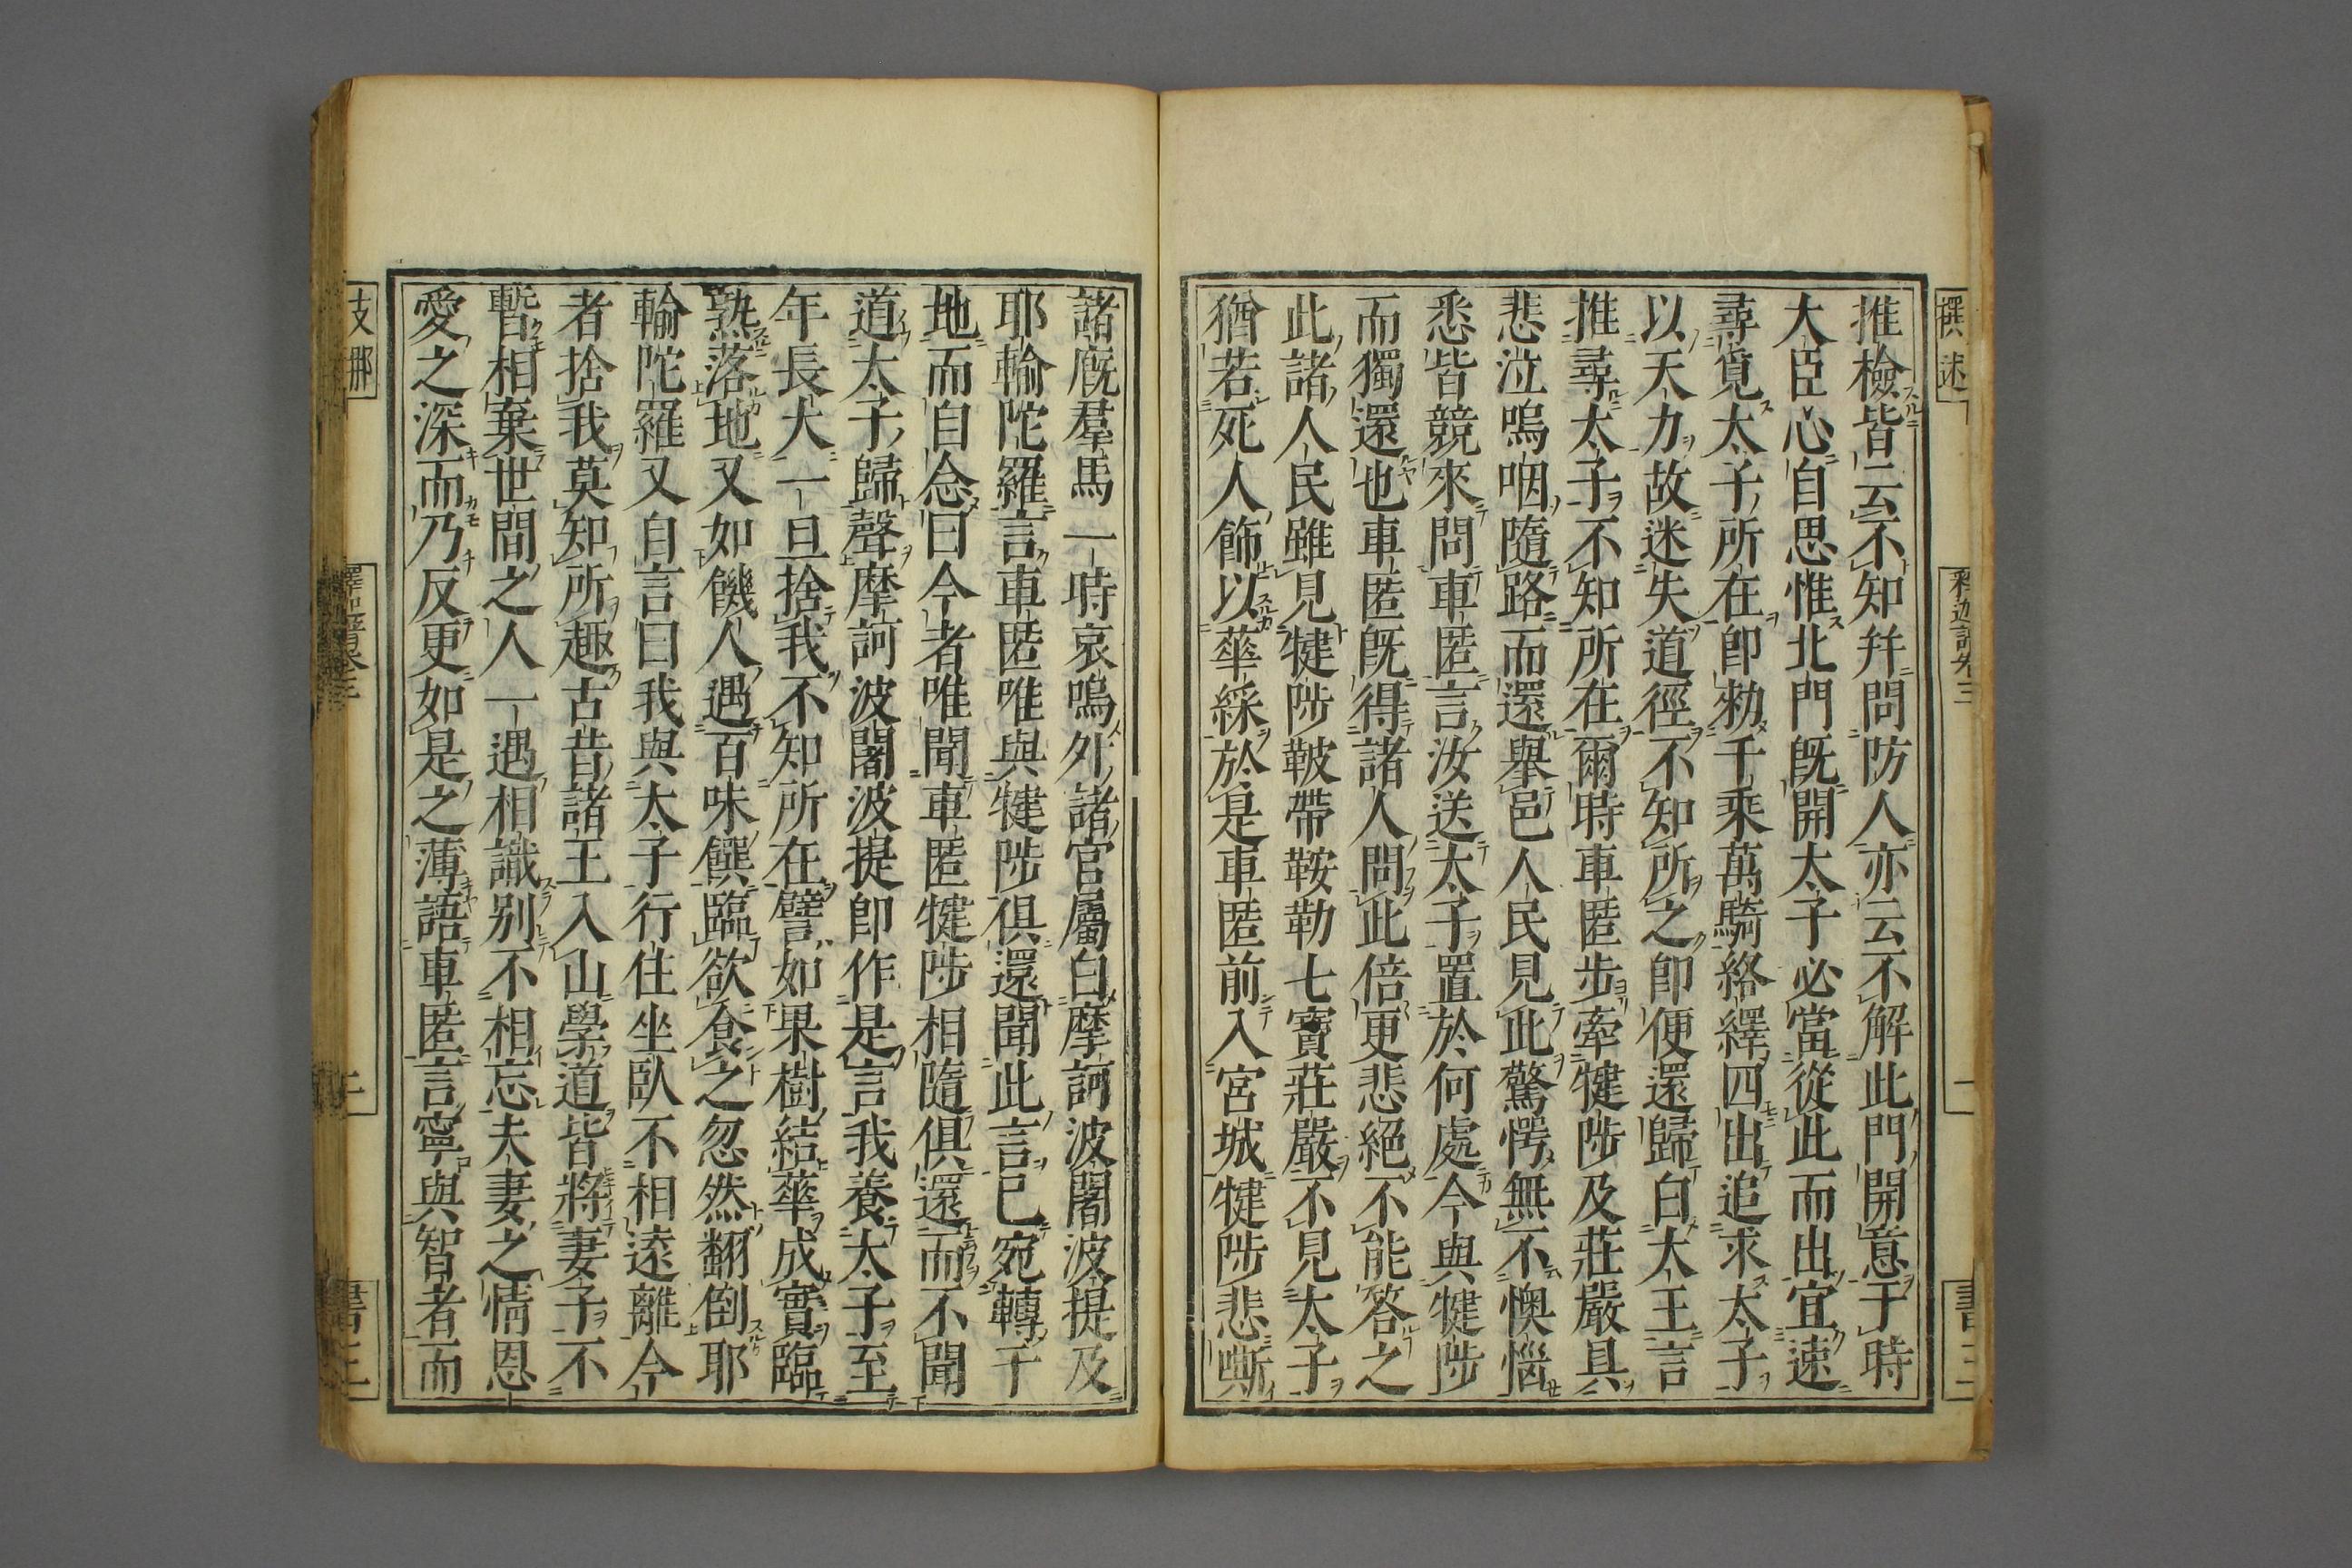 推檢皆云不知并問防人亦云不解此門開意于時
大臣心自思惟北門既開太子必當從此而出宜速
尋覓太子所在卽勑千乘萬騎絡繹四出追求太子
以天力故迷失道徑不知所之卽便還歸白大王言
推尋太子不知所在爾時車匿步牽犍陟及莊嚴具
悲泣嗚咽隨路而還舉邑人民見此驚愕無不懊惱
悉皆競來問車匿言汝送太子置於何處今與犍陟
而獨還也車匿既得諸人問此倍更悲絕不能答之
此諸人民雖見犍陟鞁帶鞍勒七寶莊嚴不見太子
猶若死人飾以華綵於是車匿前入宮城犍陟悲嘶
諸廐羣馬一時哀鳴外諸官屬白摩訶波闍波提及
耶輸陀羅言車匿唯與犍陟俱還聞此言已宛轉于
地而自念曰今者唯聞車匿犍陟相隨俱還而不聞
道太子歸聲摩訶波闍波提卽作是言我養太子至
年長大一旦捨我不知所在譬如果樹結華成實臨
熟落地又如饑人遇百味饌臨欲食之忽然翻倒耶
輸陀羅又自言曰我與太子行住坐臥不相遠離今
者捨我莫知所趣古昔諸王入山學道皆將妻子不
暫相棄世間之人一遇相識别不相忘夫妻之情恩
愛之深而乃反更如是之薄語車匿言寧與智者而
撰述
釋迦譜卷三
支那